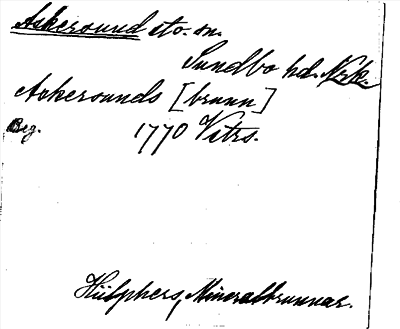 Askersund sto. sn.
Sundbo hd. Nrk.
Askersunds [brunn]
Beg. 1770 Vitrs.
Hülphers, Mineralbrunnar.